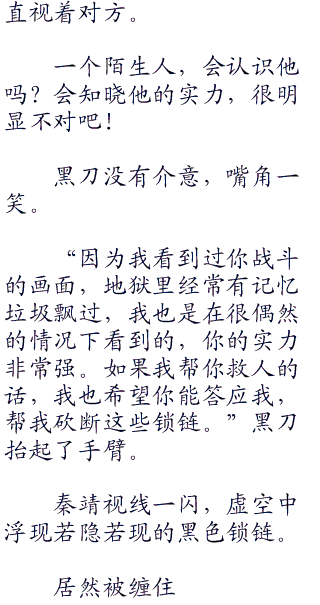 直视着对方。
一个陌生人，会认识他
吗？会知晓他的实力，很明
显不对吧！
黑刀没有介意，嘴角一
笑。
“因为我看到过你战斗
的画面，地狱里经常有记忆
垃圾飘过，我也是在很偶然
的情况下看到的，你的实力
非常强。如果我帮你救人的
话，我也希望你能答应我，
帮我砍断这些锁链。”黑刀
抬起了手臂。
秦靖视线一闪，虚空中
浮现若隐若现的黑色锁链。
居然被缠住